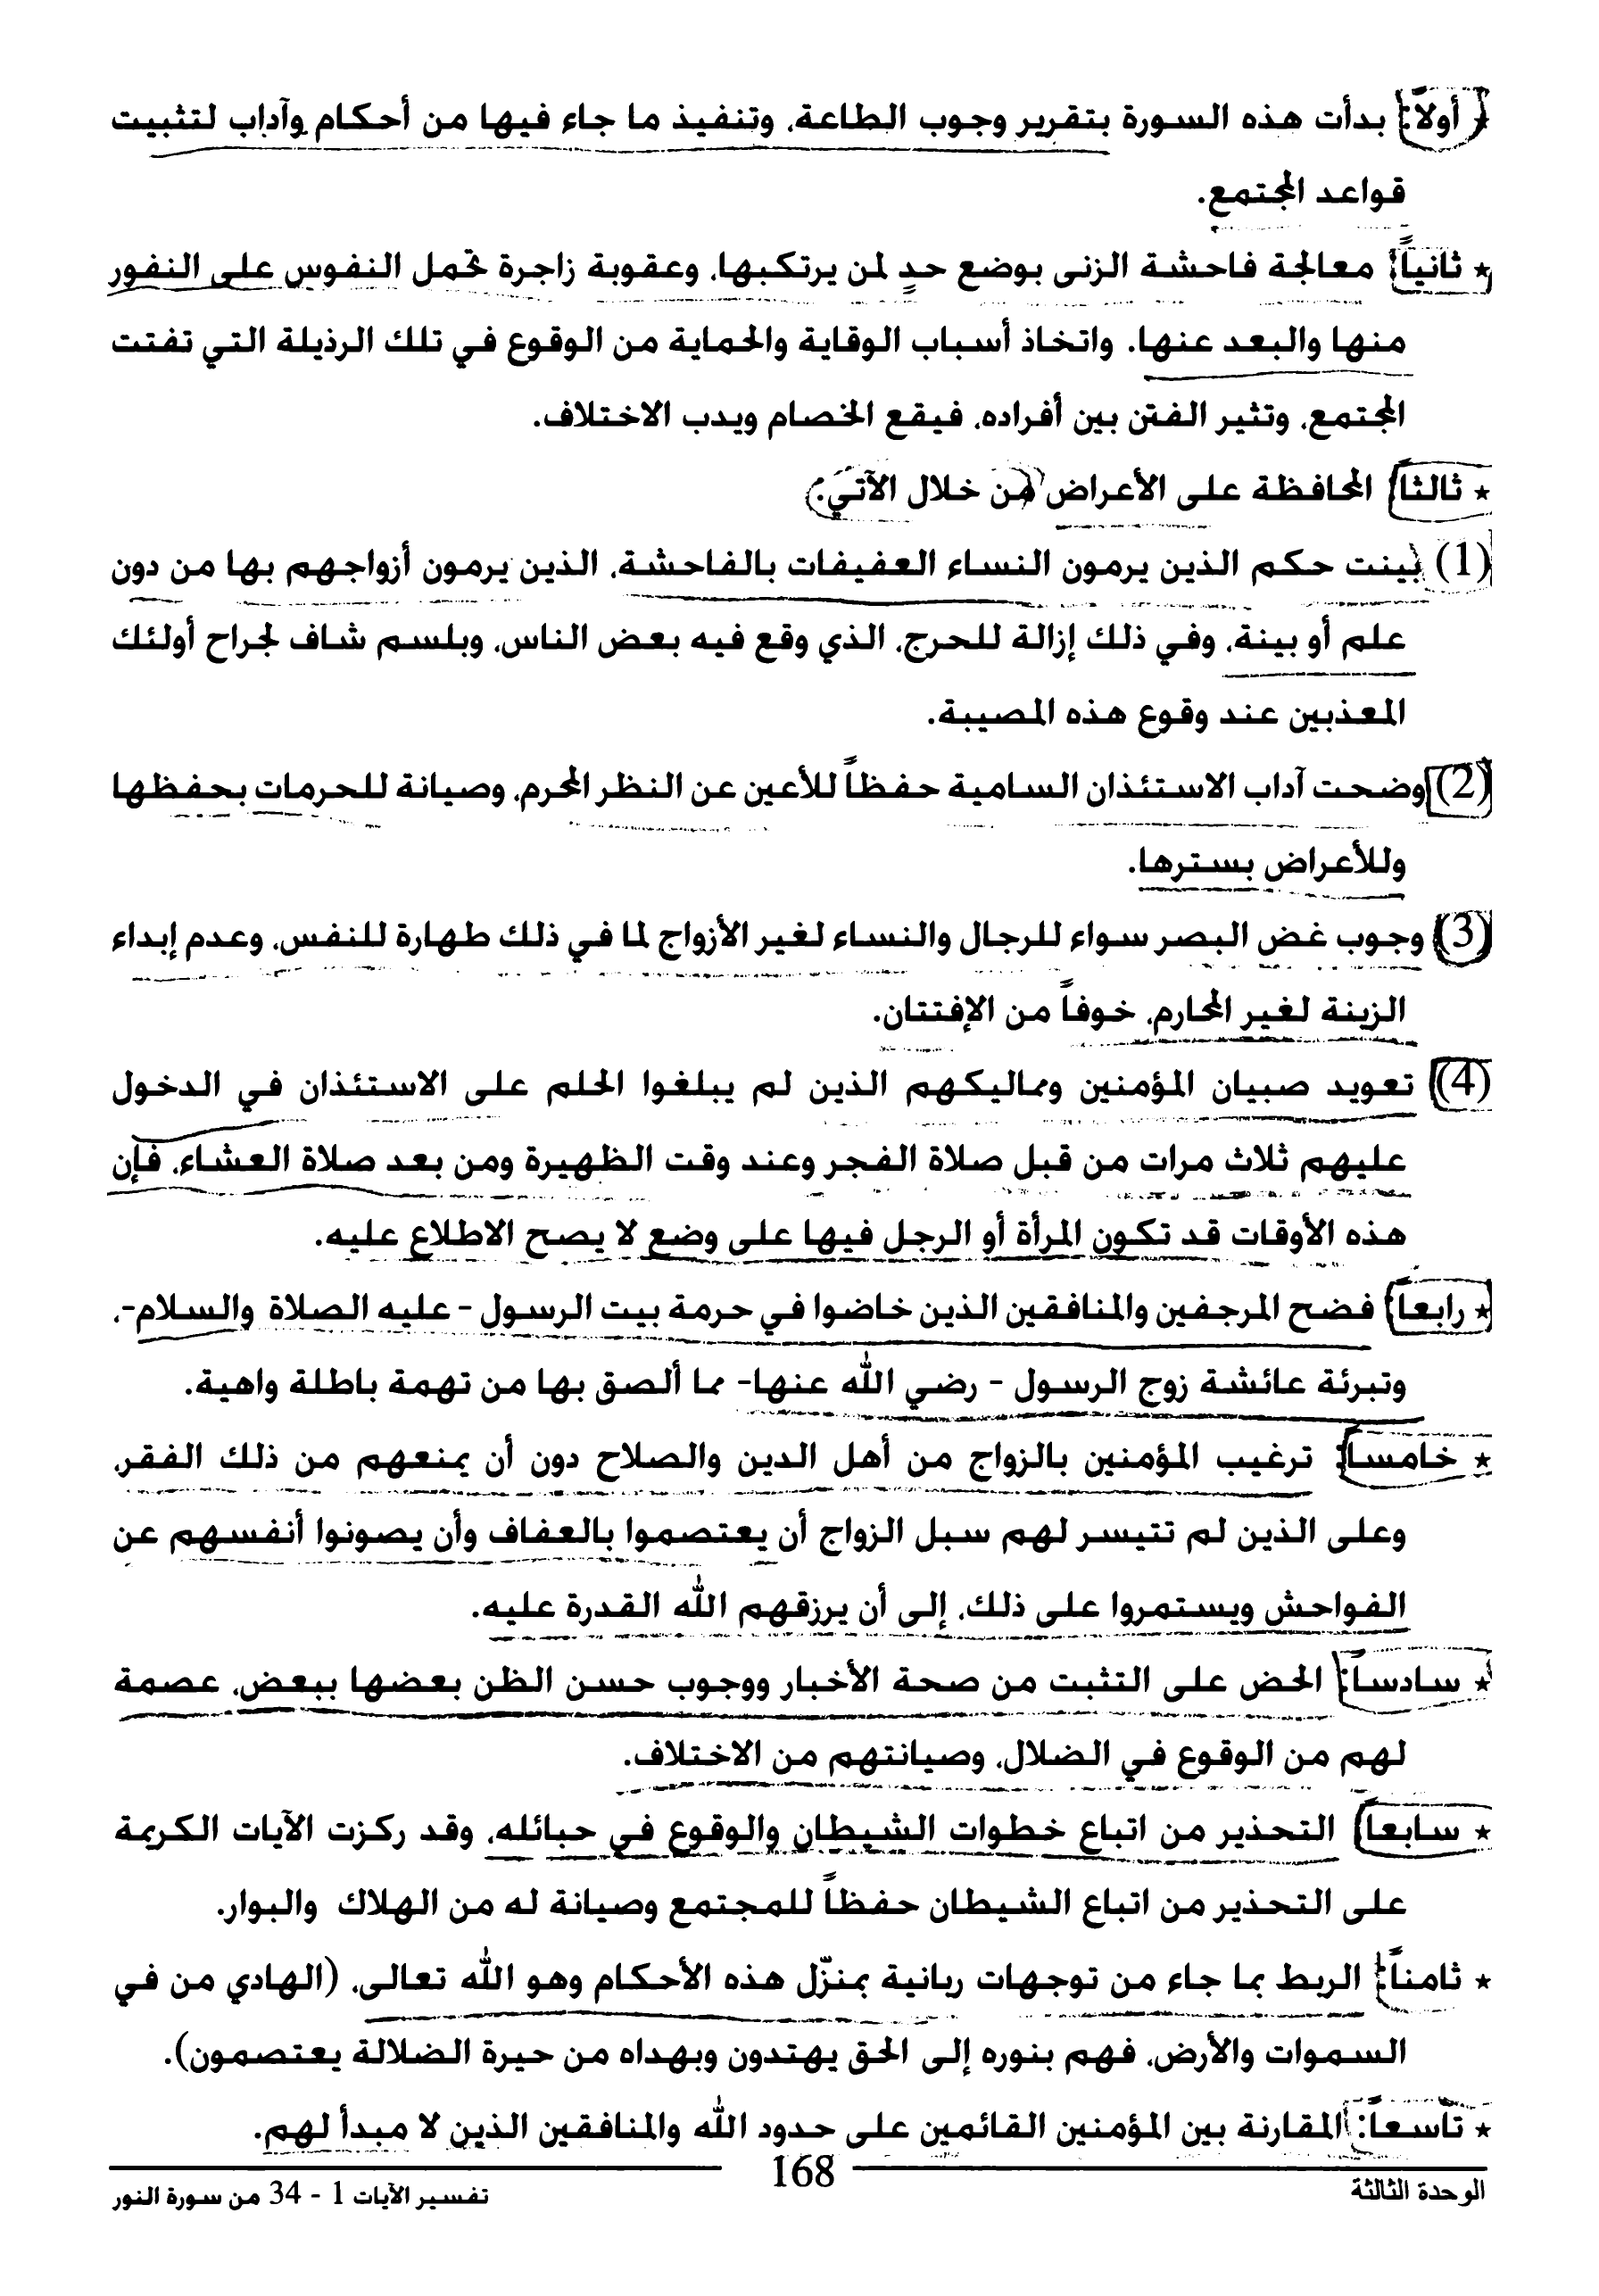 ٭ أولاً: بدأت هذه السورة بتقرير وجوب الطاعة، وتنفيذ ما جاء فيها من أحكام وآداب لتثبيت
قواعد المجتمع.
٭ ثانياً: معالجة فاحشة الزنى بوضع حدٍ لمن يرتكبها، وعقوبة زاجرة تحمل النفوس على النفور
منها والبعد عنها. واتخاذ أسباب الوقاية والحماية من الوقوع في تلك الرذيلة التي تفتت
المجتمع، وتثير الفتن بين أفراده، فيقع الخصام ويدب الاختلاف.
٭ ثالثاً: المحافظة على الأعراض من خلال الآتي:
(1) بينت حكم الذين يرمون النساء العفيفات بالفاحشة، الذين يرمون أزواجهم بها من دون
علم أو بينة، وفي ذلك إزالة للحرج، الذي وقع فيه بعض الناس، وبلسم شاف لجراح أولئك
المعذبين عند وقوع هذه المصيبة.
(2) وضحت آداب الاستئذان السامية حفظاً للأعين عن النظر المحرم، وصيانة للحرمات بحفظها
وللأعراض بسترها.
(3) وجوب غض البصر سواء للرجال والنساء لغير الأزواج لما في ذلك طهارة للنفس، وعدم إبداء
الزينة لغير المحارم، خوفاً من الإفتتان.
(4) تعويد صبيان المؤمنين ومماليكهم الذين لم يبلغوا الحلم على الاستئذان في الدخول
عليهم ثلاث مرات من قبل صلاة الفجر وعند وقت الظهيرة ومن بعد صلاة العشاء، فإن
هذه الأوقات قد تكون المرأة أو الرجل فيها على وضع لا يصح الاطلاع عليه.
٭ رابعاً: فضح المرجفين والمنافقين الذين خاضوا في حرمة بيت الرسول - عليه الصلاة والسلام-،
وتبرئة عائشة زوج الرسول - رضي الله عنها- مما ألصق بها من تهمة باطلة واهية.
٭ خامساً: ترغيب المؤمنين بالزواج من أهل الدين والصلاح دون أن يمنعهم من ذلك الفقر،
وعلى الذين لم تتيسر لهم سبل الزواج أن يعتصموا بالعفاف وأن يصونوا أنفسهم عن
الفواحش ويستمروا على ذلك، إلى أن يرزقهم الله القدرة عليه.
٭ سادساً: الحض على التثبت من صحة الأخبار ووجوب حسن الظن بعضها ببعض، عصمة
لهم من الوقوع في الضلال، وصيانتهم من الاختلاف.
٭ سابعاً: التحذير من اتباع خطوات الشيطان والوقوع في حبائله، وقد ركزت الآيات الكريمة
على التحذير من اتباع الشيطان حفظاً للمجتمع وصيانة له من الهلاك والبوار.
٭ ثامناً: الربط بما جاء من توجهات ربانية بمنزّل هذه الأحكام وهو الله تعالى، (الهادي من في
السموات والأرض، فهم بنوره إلى الحق يهتدون وبهداه من حيرة الضلالة يعتصمون).
٭ تاسعاً: المقارنة بين المؤمنين القائمين على حدود الله والمنافقين الذين لا مبدأ لهم.
الوحدة الثالثة 168 تفسير الآيات 1 - 34 من سورة النور